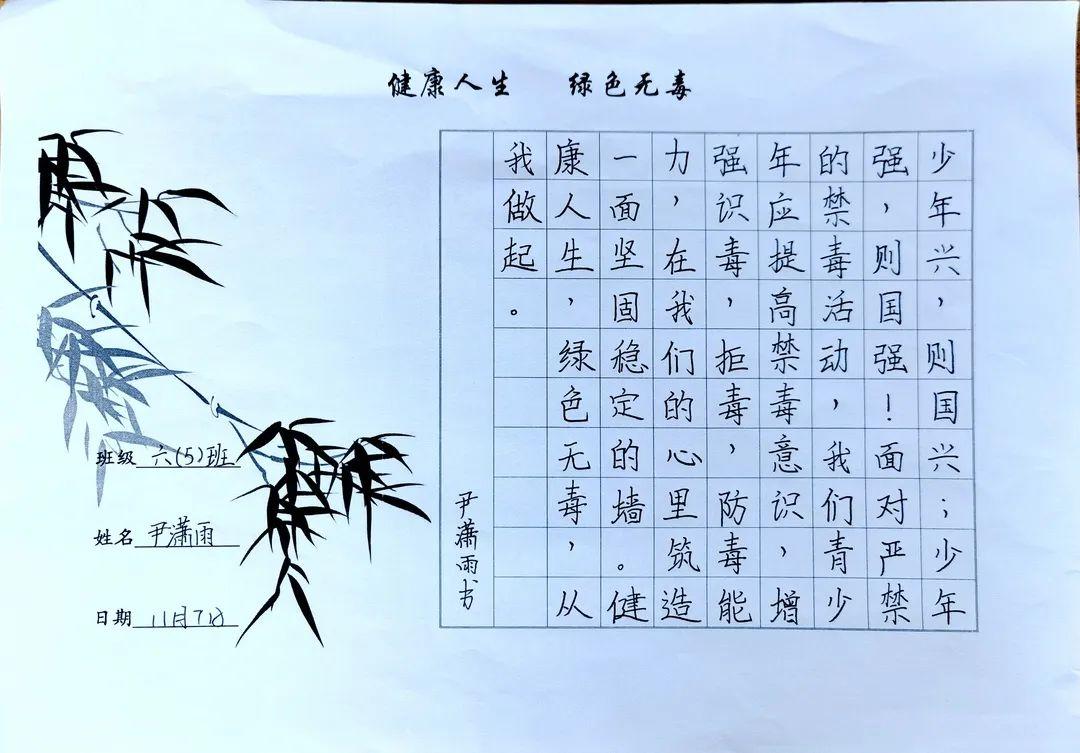 健康人生 绿色无毒
少年兴，则国兴；少年
强，则国强！面对严禁
的禁毒活动，我们青少
年应提高禁毒意识，增
强识毒，拒毒，防毒能
力，在我们的心里筑造
一面坚固稳定的墙。健
康人生，绿色无毒，从
我做起。
尹潇雨书
班级 六(5)班
姓名 尹潇雨
日期 11月7日